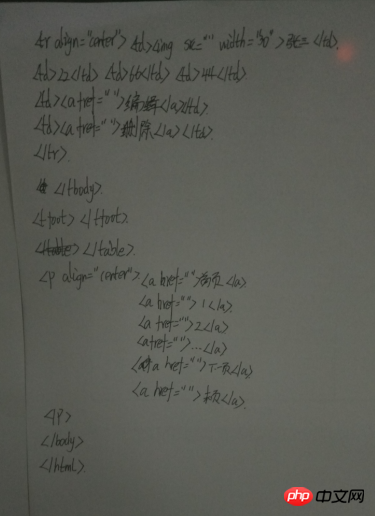 <tr align="center"> <td><img src="" width="30">张三</td>.
<td>22</td> <td>66</td> <td>44</td>
<td><a href="">编辑</a></td>.
<td><a href="">删除</a></td>.
</tr>.
</tbody>.
<tfoot></tfoot>.
</table>.
<p align="center"> <a href="">首页</a>
<a href="">1</a>.
<a href="">2</a>
<a href="">...</a>
<a href="">下一页</a>
<a href="">末页</a>.
</p>
</body>
</html>
php 中文网